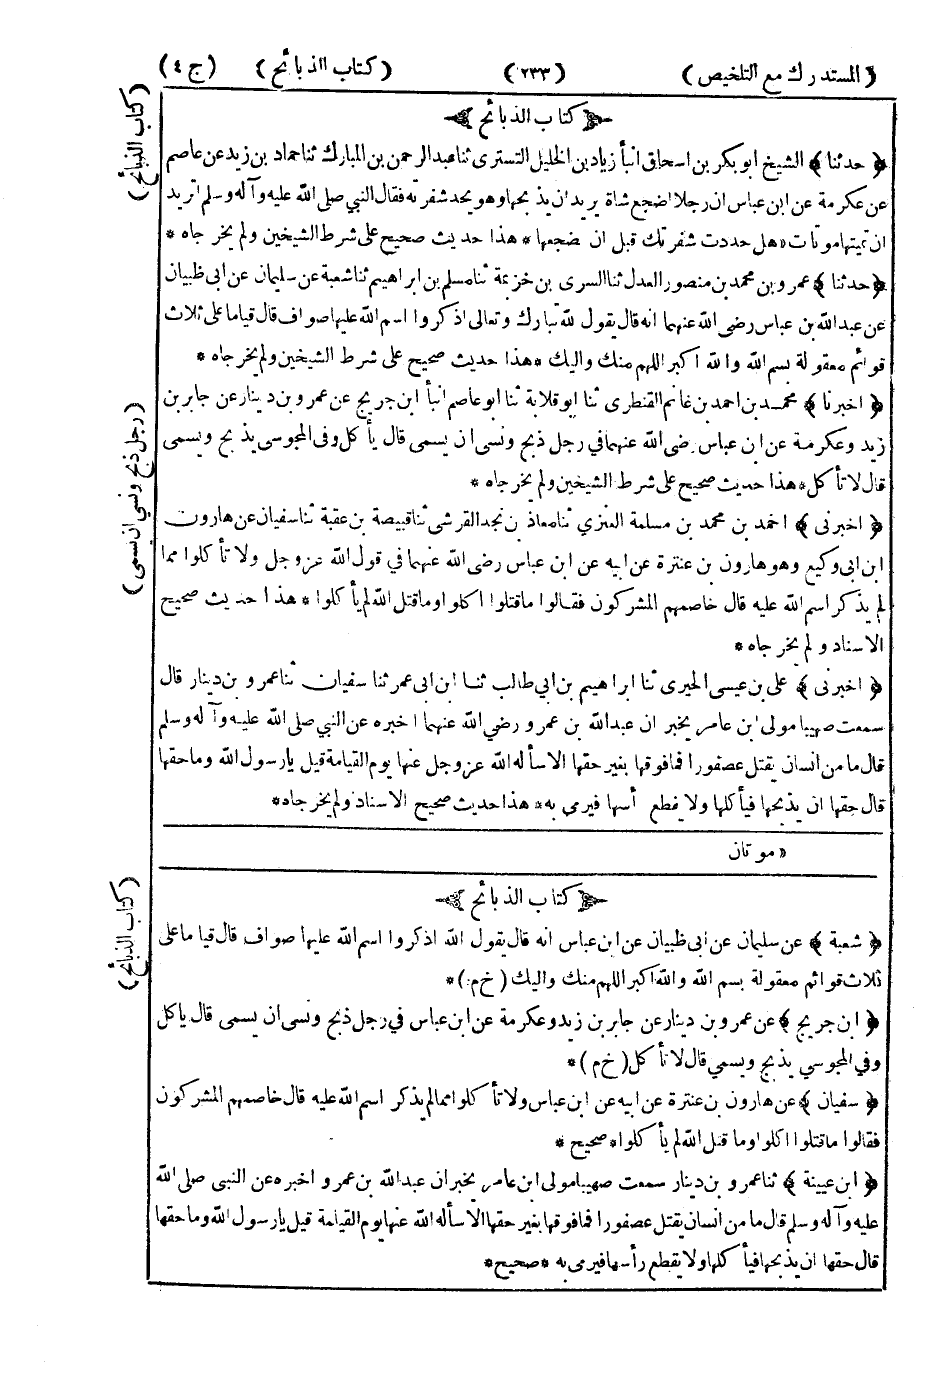 (المستدرك مع التلخيص) (٢٣٣) (كتاب الذبائح) (ج ٤)
كتاب الذبائح
(كتاب الذبائح)
﴿ حدثنا ﴾ الشيخ ابو بكر بن اسحاق انبأ زياد بن الخليل التسترى ثنا عبد الرحمن بن المبارك ثنا حماد بن زيد عن عاصم
عن عكرمة عن ابن عباس ان رجلا اضجع شاة يريد ان يذبحها وهو يحد شفرته فقال النبي صلى الله عليه وآله وسلم اتريد
ان تميتها موتات * هل حددت شفرتك قبل ان تضجعها * هذا حديث صحيح على شرط الشيخين ولم يخرجاه *
﴿ حدثنا ﴾ عمرو بن محمد بن منصور العدل ثنا السرى بن خزيمة ثنا مسلم بن ابراهيم ثنا شعبة عن سليمان عن ابى ظبيان
عن عبدالله بن عباس رضى الله عنهما انه قال يقول الله تبارك وتعالى اذكروا اسم الله عليها صواف قال قياما على ثلاث
قوائم معقولة بسم الله والله اكبر اللهم منك واليك * هذا حديث صحيح على شرط الشيخين ولم يخرجاه *
﴿ اخبرنا ﴾ محمد بن احمد بن غانم القنطرى ثنا ابو قلابة ثنا ابو عاصم انبأ ابن جريج عن عمرو بن دينار عن جابر بن
(رجل ذبح ونسي ان يسمى)
زيد وعكرمة عن ابن عباس رضى الله عنهما في رجل ذبح ونسى ان يسمى قال يأكل وفى المجوسى يذبح ويسمى
قال لا تأكل * هذا حديث صحيح على شرط الشيخين ولم يخرجاه *
﴿ اخبرنى ﴾ احمد بن محمد بن مسلمة العنزي ثنا معاذ بن نجد القرشى ثنا قبيصة بن عقبة ثنا سفيان عن هارون
ابن ابى وكيع وهو هارون بن عنترة عن ابيه عن ابن عباس رضى الله عنهما في قول الله عز وجل ولا تأكلوا مما
لم يذكر اسم الله عليه قال خاصمهم المشركون فقالوا ما قتلوا اكلوا وما قتل الله لم يأكلوا * هذا حديث صحيح
الاسناد ولم يخرجاه *
﴿ اخبرنى ﴾ على بن عيسى الحيرى ثنا ابراهيم بن ابي طالب ثنا ابن ابى عمر ثنا سفيان ثنا عمرو بن دينار قال
سمعت صهيبا مولى ابن عامر يخبر ان عبدالله بن عمرو رضى الله عنهما اخبره عن النبي صلى الله عليه وآله وسلم
قال ما من انسان يقتل عصفورا فما فوقها بغير حقها الا سأله الله عز وجل عنها يوم القيامة قيل يا رسول الله وما حقها
قال حقها ان يذبحها فيأكلها ولا يقطع رأسها فيرمى به * هذا حديث صحيح الاسناد ولم يخرجاه *
* موتان
كتاب الذبائح
(كتاب الذبائح)
﴿ شعبة ﴾ عن سليمان عن ابى ظبيان عن ابن عباس انه قال يقول الله اذكروا اسم الله عليها صواف قال قياما على
ثلاث قوائم معقولة بسم الله والله اكبر اللهم منك واليك (خ م) *
﴿ ابن جريج ﴾ عن عمرو بن دينار عن جابر بن زيد وعكرمة عن ابن عباس في رجل ذبح ونسى ان يسمى قال ياكل
وفي المجوسي يذبح ويسمي قال لا تأكل (خ م) *
﴿ سفيان ﴾ عن هارون بن عنترة عن ابيه عن ابن عباس ولا تأكلوا مما لم يذكر اسم الله عليه قال خاصمهم المشركون
فقالوا ما قتلوا اكلوا وما قتل الله لم يأكلوا * صحيح *
﴿ ابن عيينة ﴾ ثنا عمرو بن دينار سمعت صهيبا مولى ابن عامر يخبر ان عبدالله بن عمرو اخبره عن النبى صلى الله
عليه وآله وسلم قال ما من انسان يقتل عصفورا فما فوقها بغير حقها الا سأله الله عنها يوم القيامة قيل يا رسول الله وما حقها
قال حقها ان يذبحها فيأكلها ولا يقطع رأسها فيرمى به * صحيح *